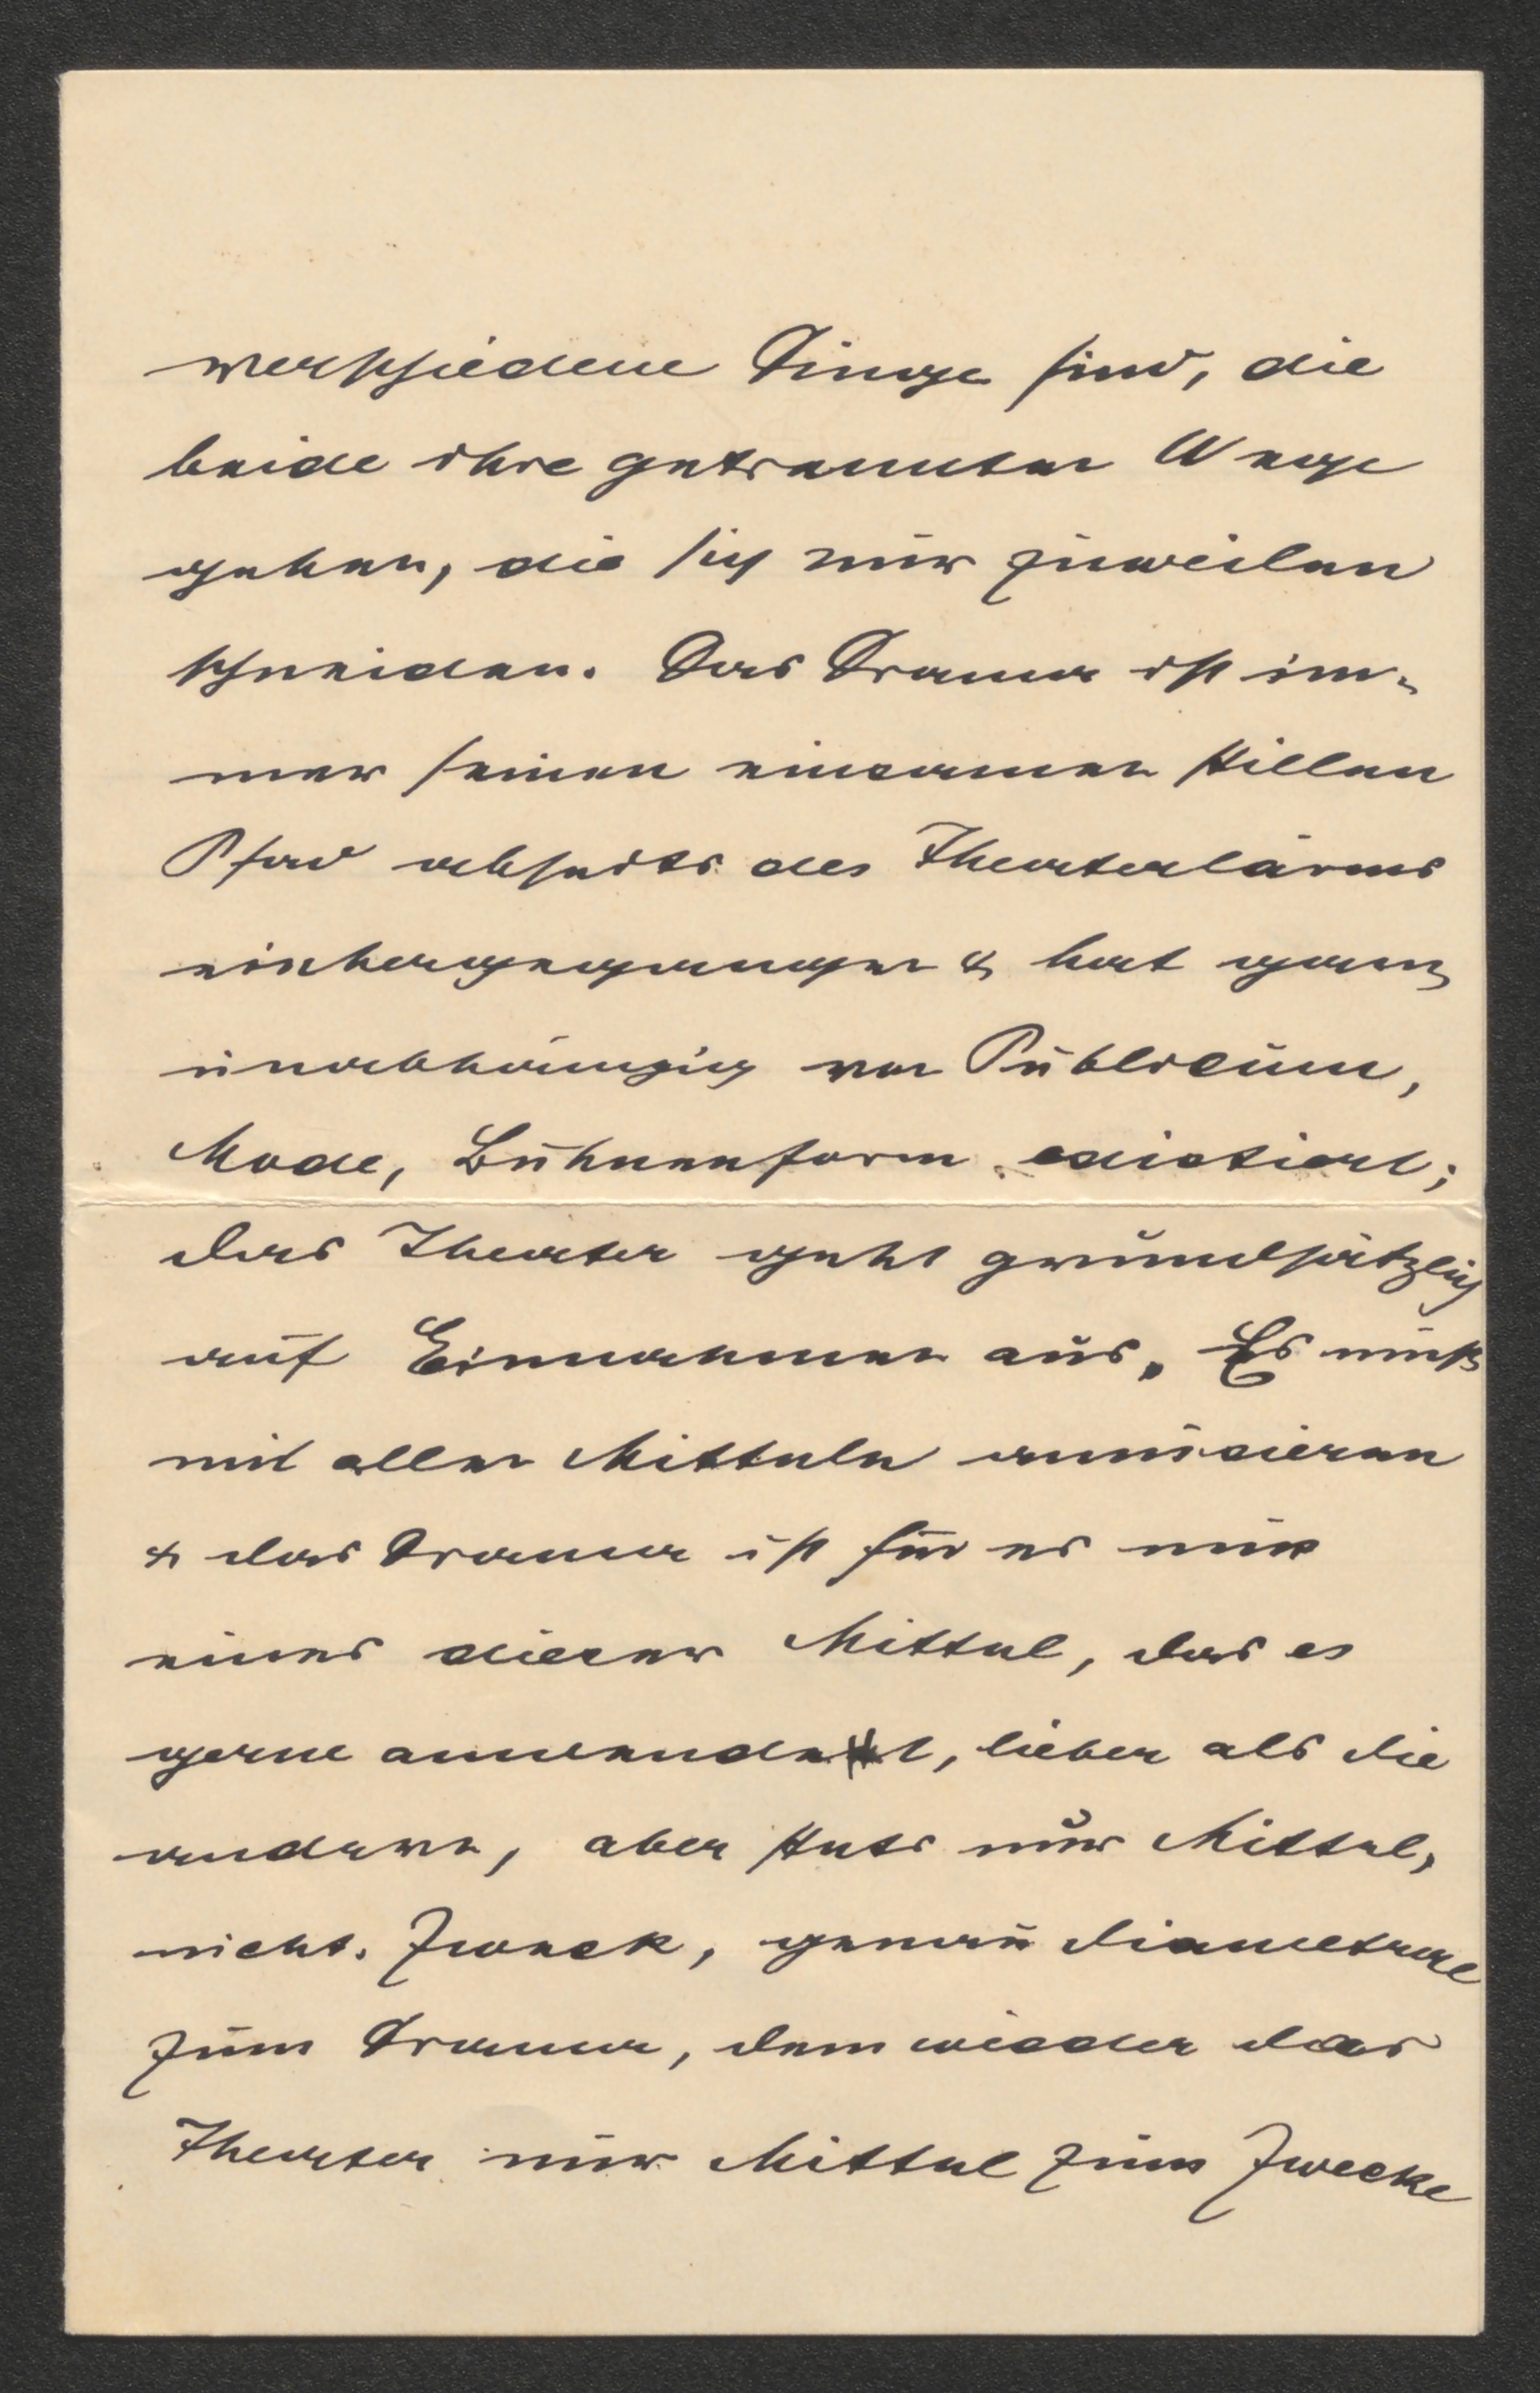 verschiedene Dinge sind, die
beide ihre getrennten Wege
gehen, die sich nur zuweilen
schneiden. Das Drama ist im-
mer seinen einsamen stillen
Pfad abseits des Theaterlärms
einhergegangen & hat ganz
unabhängig von Publicum,
Mode, Bühnenform existiert;
das Theater geht grundsätzlich
auf Einnahmen aus. Es muß
mit allen Mitteln amüsieren
& das Drama ist für es nur
eines dieser Mittel, das es
gerne anwendet, lieber als die
andern, aber stets nur Mittel,
nicht Zweck, genau diametral
zum Drama, dem wieder das
Theater nur Mittel zum Zwecke